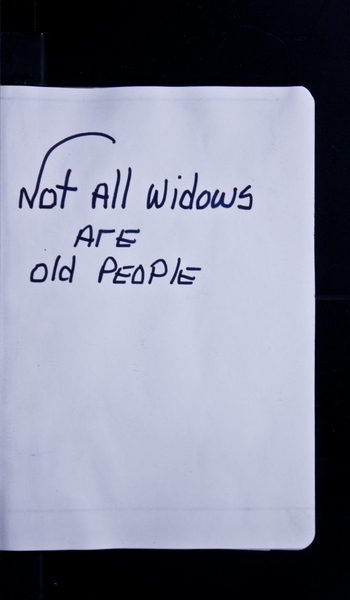 Not All widows
ArE
old PEOPlE